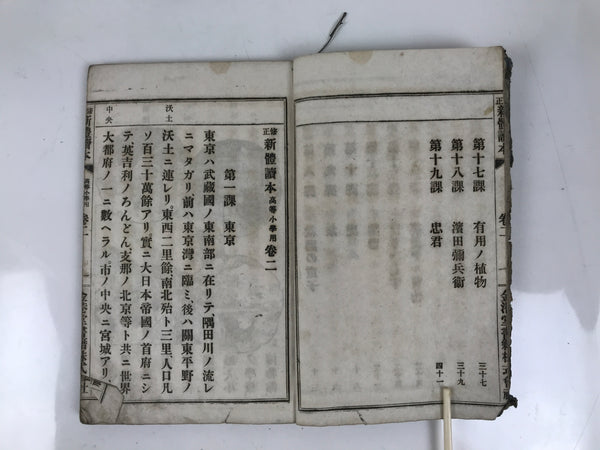 第十七課 有用ノ植物 三十七
第十八課 濱田彌兵衞 三十九
第十九課 忠君 四十一
修正 新體讀本 高等小學用 卷二
第一課 東京
東京ハ武藏國ノ東南部ニ在リテ、隅田川ノ流レ
ニマタガリ、前ハ東京灣ニ臨ミ、後ハ關東平野ノ
沃土ニ連レリ。東西二里餘、南北殆ト三里、人口凡
ソ百三十萬餘アリ。實ニ大日本帝國ノ首府ニシ
テ、英吉利ノろんどん、支那ノ北京等ト共ニ世界
大都府ノ一ニ數ヘラル。市ノ中央ニ宮城アリ。
沃土
中央
新體讀本 高等小學用 卷二